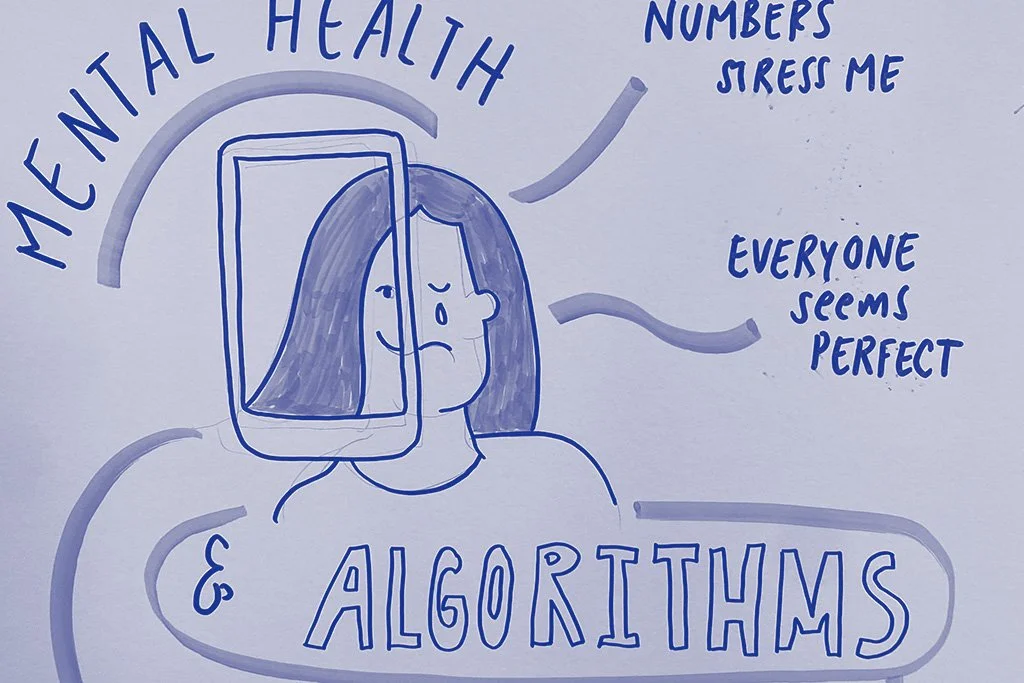 MENTAL HEALTH
NUMBERS
STRESS ME
EVERYONE
seems
PERFECT
& ALGORITHMS